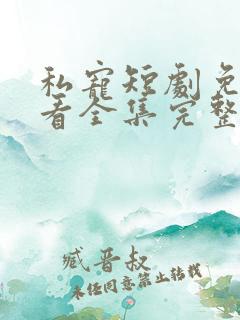 私寵短劇免
看全集完整
臧晋叔
未经同意禁止转载